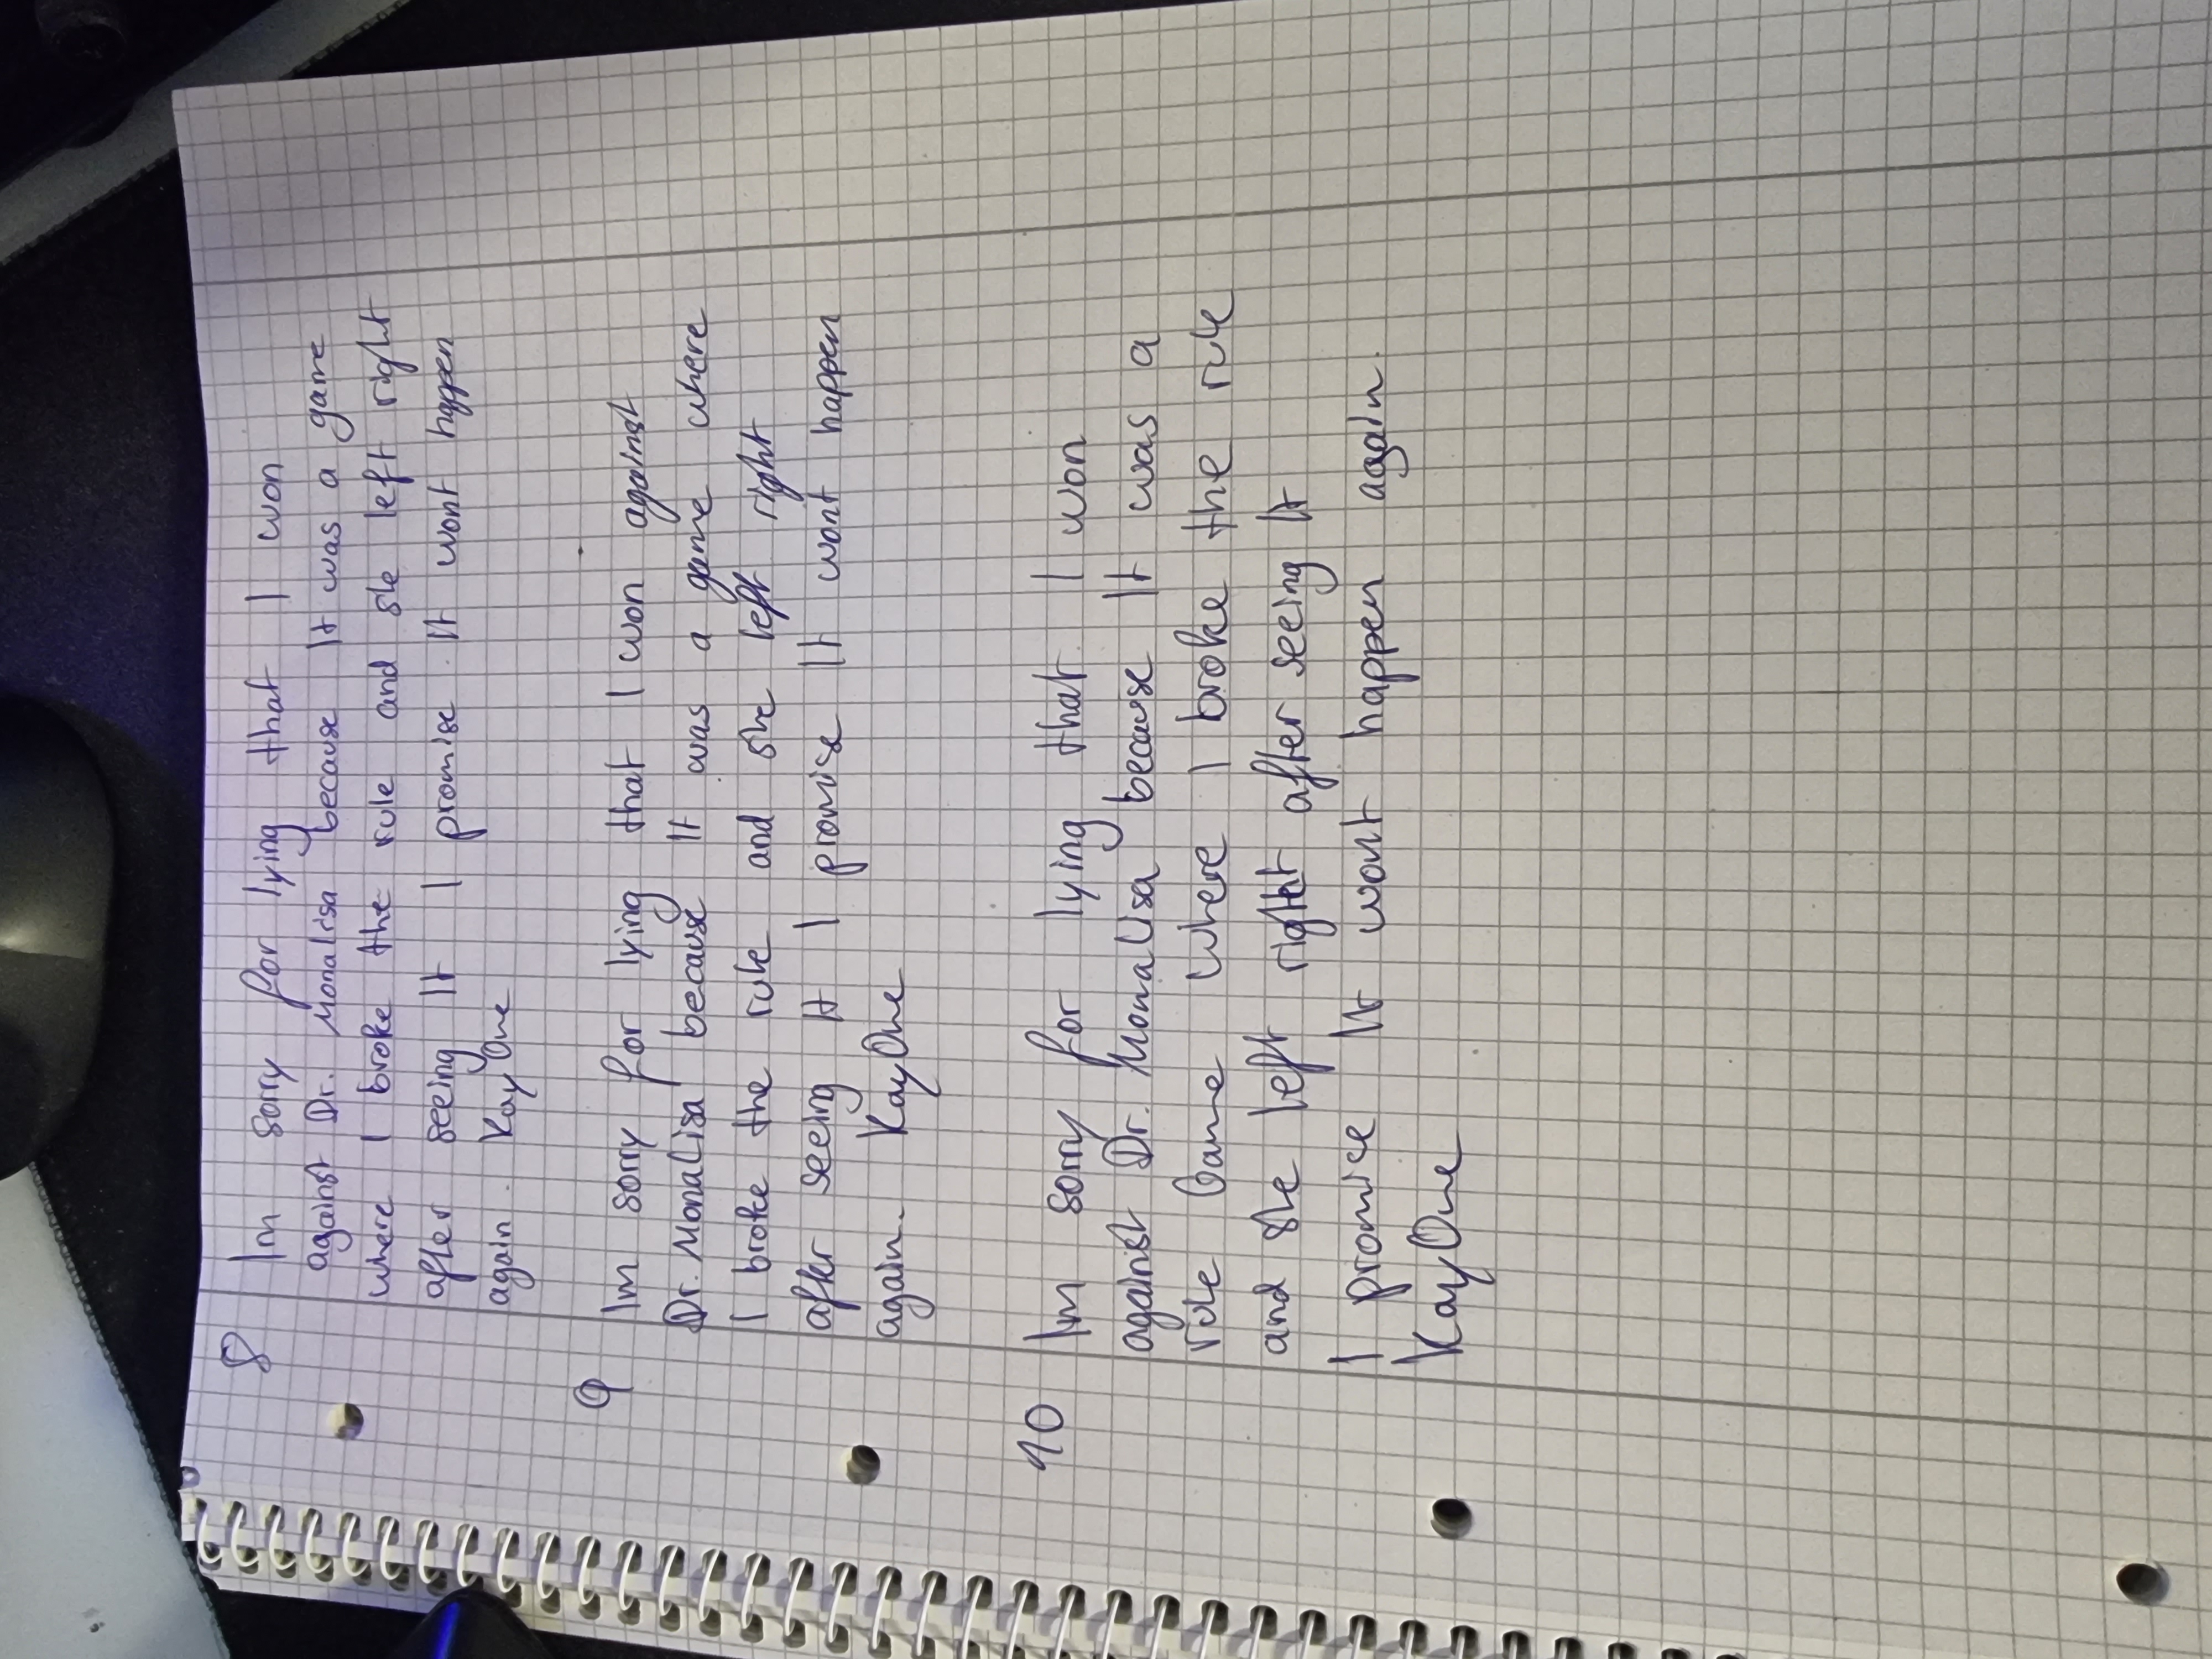 8 Im sorry for lying that I won
against Dr. MonaLisa because It was a game
where I broke the rule and she left right
after seeing It I promise It wont happen
again. KayOne
9 Im sorry for lying that I won against
Dr. MonaLisa because It was a game where
I broke the rule and she left right
after seeing It I promise It wont happen
again. KayOne
10 Im sorry for lying that I won
against Dr. MonaLisa because It was a
rule Game where I broke the rule
and she left right after seeing It
I promise It wont happen again.
KayOne